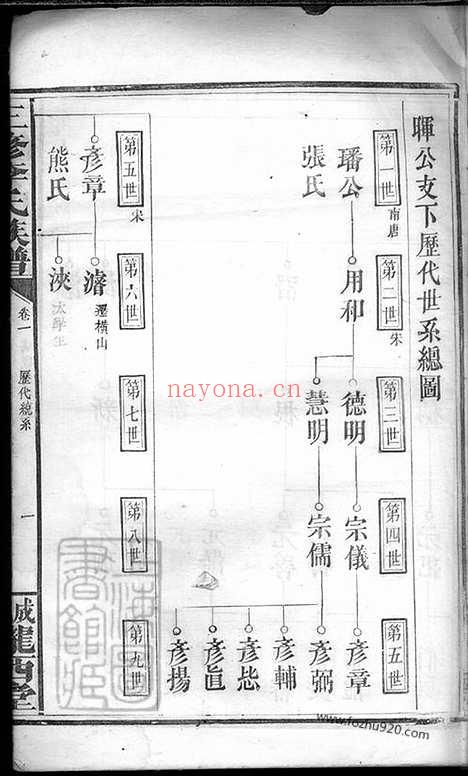 暉公支下歷代世系總圖
第一世 南唐
璠公
張氏
第二世 宋
用和
第三世
德明
慧明
第四世
宗儀
宗儒
第五世
彥章
彥弼
彥輔
彥㤙
彥眞
彥揚
第五世 宋
彥章
熊氏
第六世
濬 遷橫山
浹 太學生
第七世
第八世
第九世
三修李氏族譜
卷一
歷代統系
一
隴西堂
nayona.cn
www.fozhu920.com